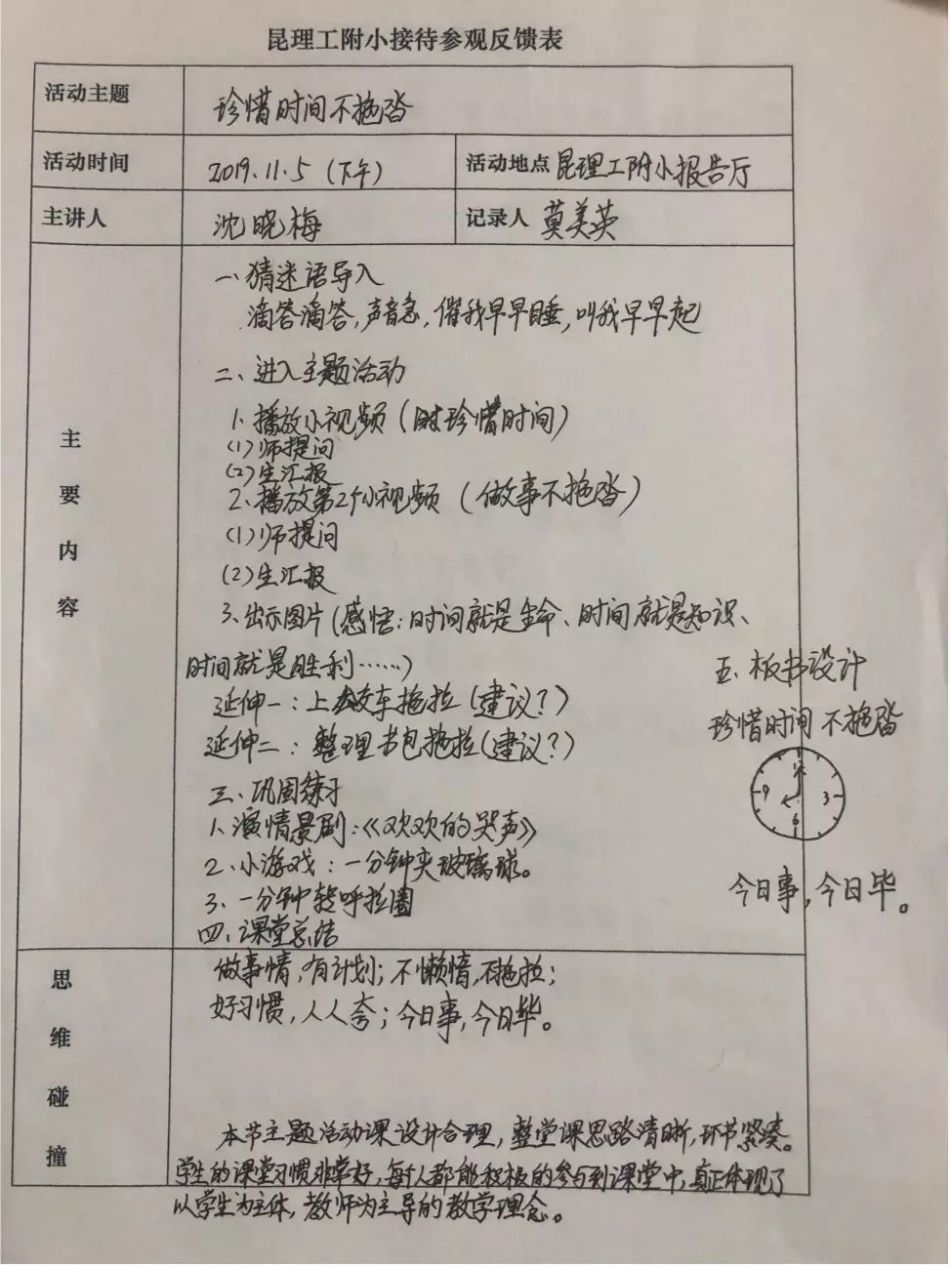 昆理工附小接待参观反馈表
活动主题 珍惜时间不拖沓
活动时间 2019.11.5（下午） 活动地点 昆理工附小报告厅
主讲人 沈晓梅 记录人 莫美英
主要内容
一、猜迷语导入
滴答滴答，声音急，催我早早睡，叫我早早起
二、进入主题活动
1、播放小视频（珍惜时间）
(1)师提问
(2)生汇报
2、播放第2个小视频（做事不拖沓）
(1)师提问
(2)生汇报
3、出示图片（感悟：时间就是生命、时间就是知识、
时间就是胜利……）
延伸一：上校车拖拉（建议？）
延伸二：整理书包拖拉（建议？）
三、巩固练习
1、演情景剧：《欢欢的哭声》
2、小游戏：一分钟夹玻璃球。
3、一分钟转呼拉圈
四、课堂总结
做事情，有计划；不懒惰，不拖拉；
好习惯，人人夸；今日事，今日毕。
五、板书设计
珍惜时间 不拖沓
12
9 3
6
今日事，今日毕。
思维碰撞
本节主题活动课设计合理，整堂课思路清晰，环节紧凑。
学生的课堂习惯非常好，每个人都能积极的参与到课堂中，真正体现了
以学生为主体，教师为主导的教学理念。